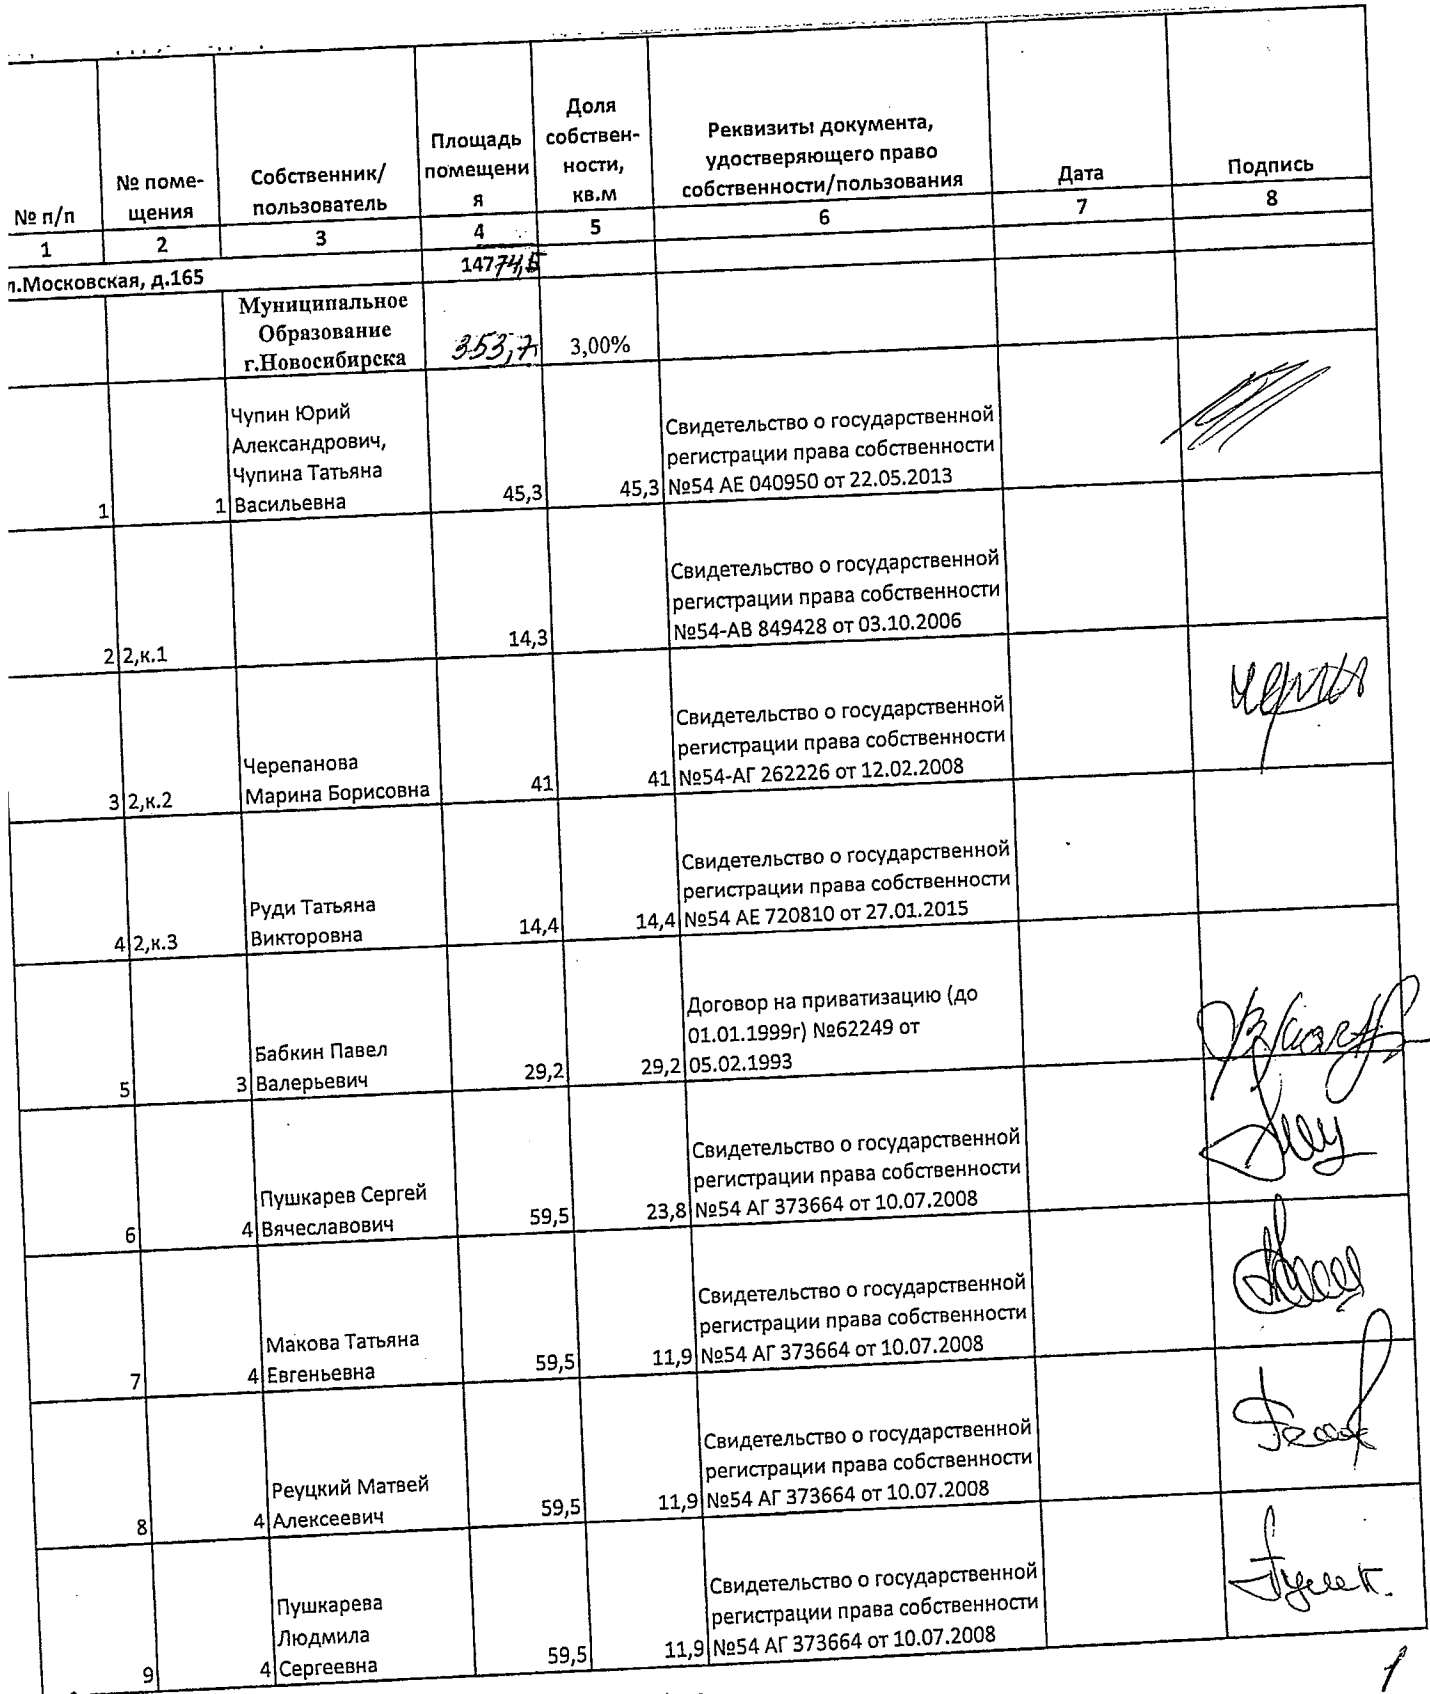 № п/п
№ поме-
щения
Собственник/
пользователь
Площадь
помещени
я
Доля
собствен-
ности,
кв.м
Реквизиты документа,
удостверяющего право
собственности/пользования
Дата
Подпись
1 2 3 4 5 6 7 8
л.Московская, д.165 14774,5
Муниципальное
Образование
г.Новосибирска
353,7 3,00%
Чупин Юрий
Александрович,
Чупина Татьяна
1 1 Васильевна 45,3 45,3
Свидетельство о государственной
регистрации права собственности
№54 АЕ 040950 от 22.05.2013
2 2,к.1 14,3
Свидетельство о государственной
регистрации права собственности
№54-АВ 849428 от 03.10.2006
Черепанова
3 2,к.2 Марина Борисовна 41 41
Свидетельство о государственной
регистрации права собственности
№54-АГ 262226 от 12.02.2008
Руди Татьяна
4 2,к.3 Викторовна 14,4 14,4
Свидетельство о государственной
регистрации права собственности
№54 АЕ 720810 от 27.01.2015
Бабкин Павел
5 3 Валерьевич 29,2 29,2
Договор на приватизацию (до
01.01.1999г) №62249 от
05.02.1993
Пушкарев Сергей
6 4 Вячеславович 59,5 23,8
Свидетельство о государственной
регистрации права собственности
№54 АГ 373664 от 10.07.2008
Макова Татьяна
7 4 Евгеньевна 59,5 11,9
Свидетельство о государственной
регистрации права собственности
№54 АГ 373664 от 10.07.2008
Реуцкий Матвей
8 4 Алексеевич 59,5 11,9
Свидетельство о государственной
регистрации права собственности
№54 АГ 373664 от 10.07.2008
Пушкарева
Людмила
9 4 Сергеевна 59,5 11,9
Свидетельство о государственной
регистрации права собственности
№54 АГ 373664 от 10.07.2008
1